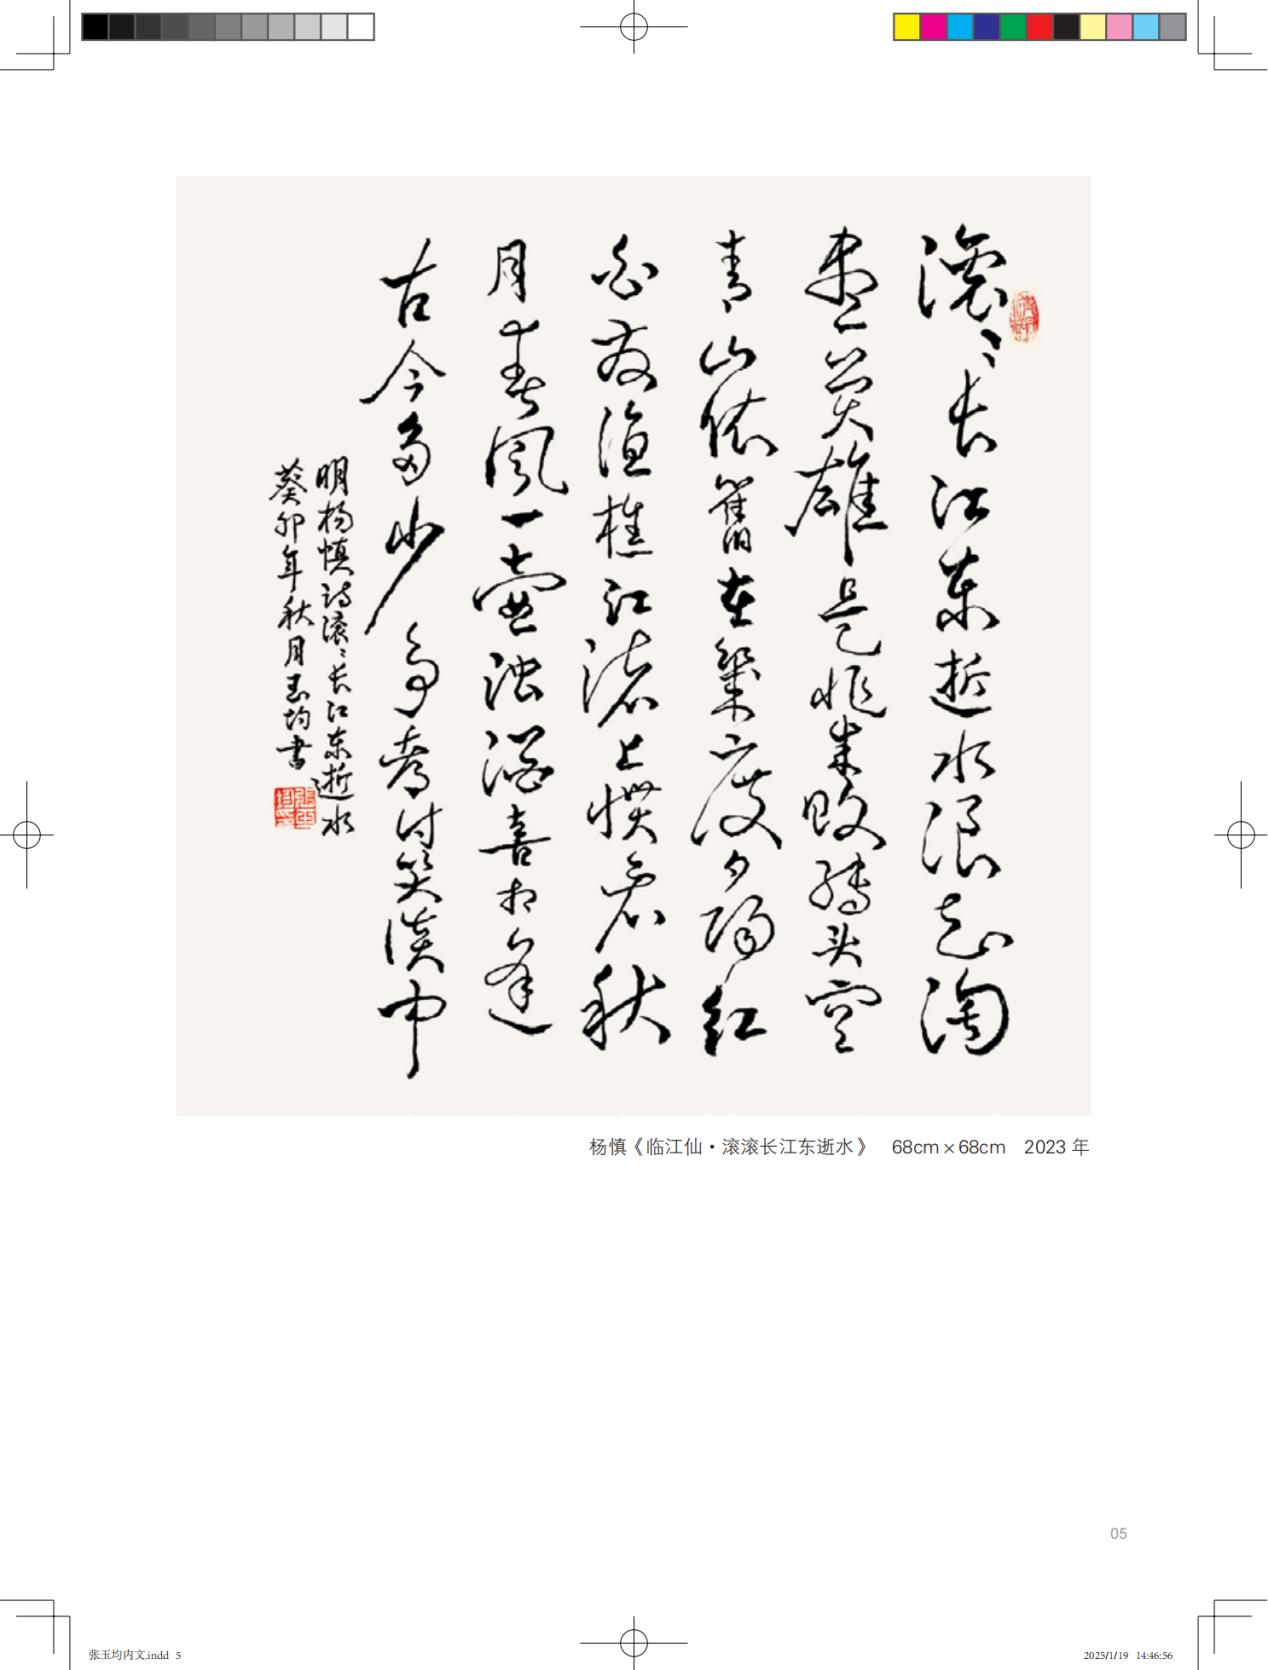 滚〻长江东逝水浪花淘
盡英雄是非成敗轉头空
青山依舊在幾度夕陽紅
白髮漁樵江渚上慣看秋
月春風一壺濁酒喜相逢
古今多少事都付笑談中
明杨慎詩滚〻长江东逝水
癸卯年秋月玉均書
杨慎《临江仙·滚滚长江东逝水》 68cm×68cm 2023 年
05
张玉均内文.indd 5
2025/1/19 14:46:56